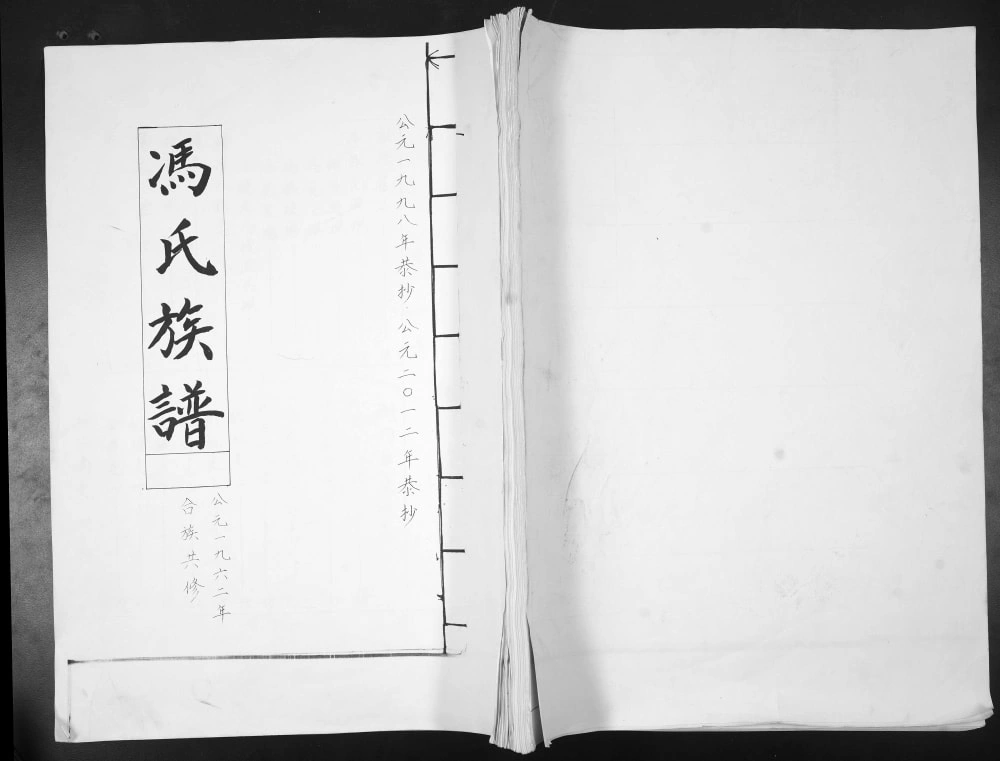 公元一九九八年恭抄·公元二〇一二年恭抄
馮氏族譜
公元一九六二年
合族共修